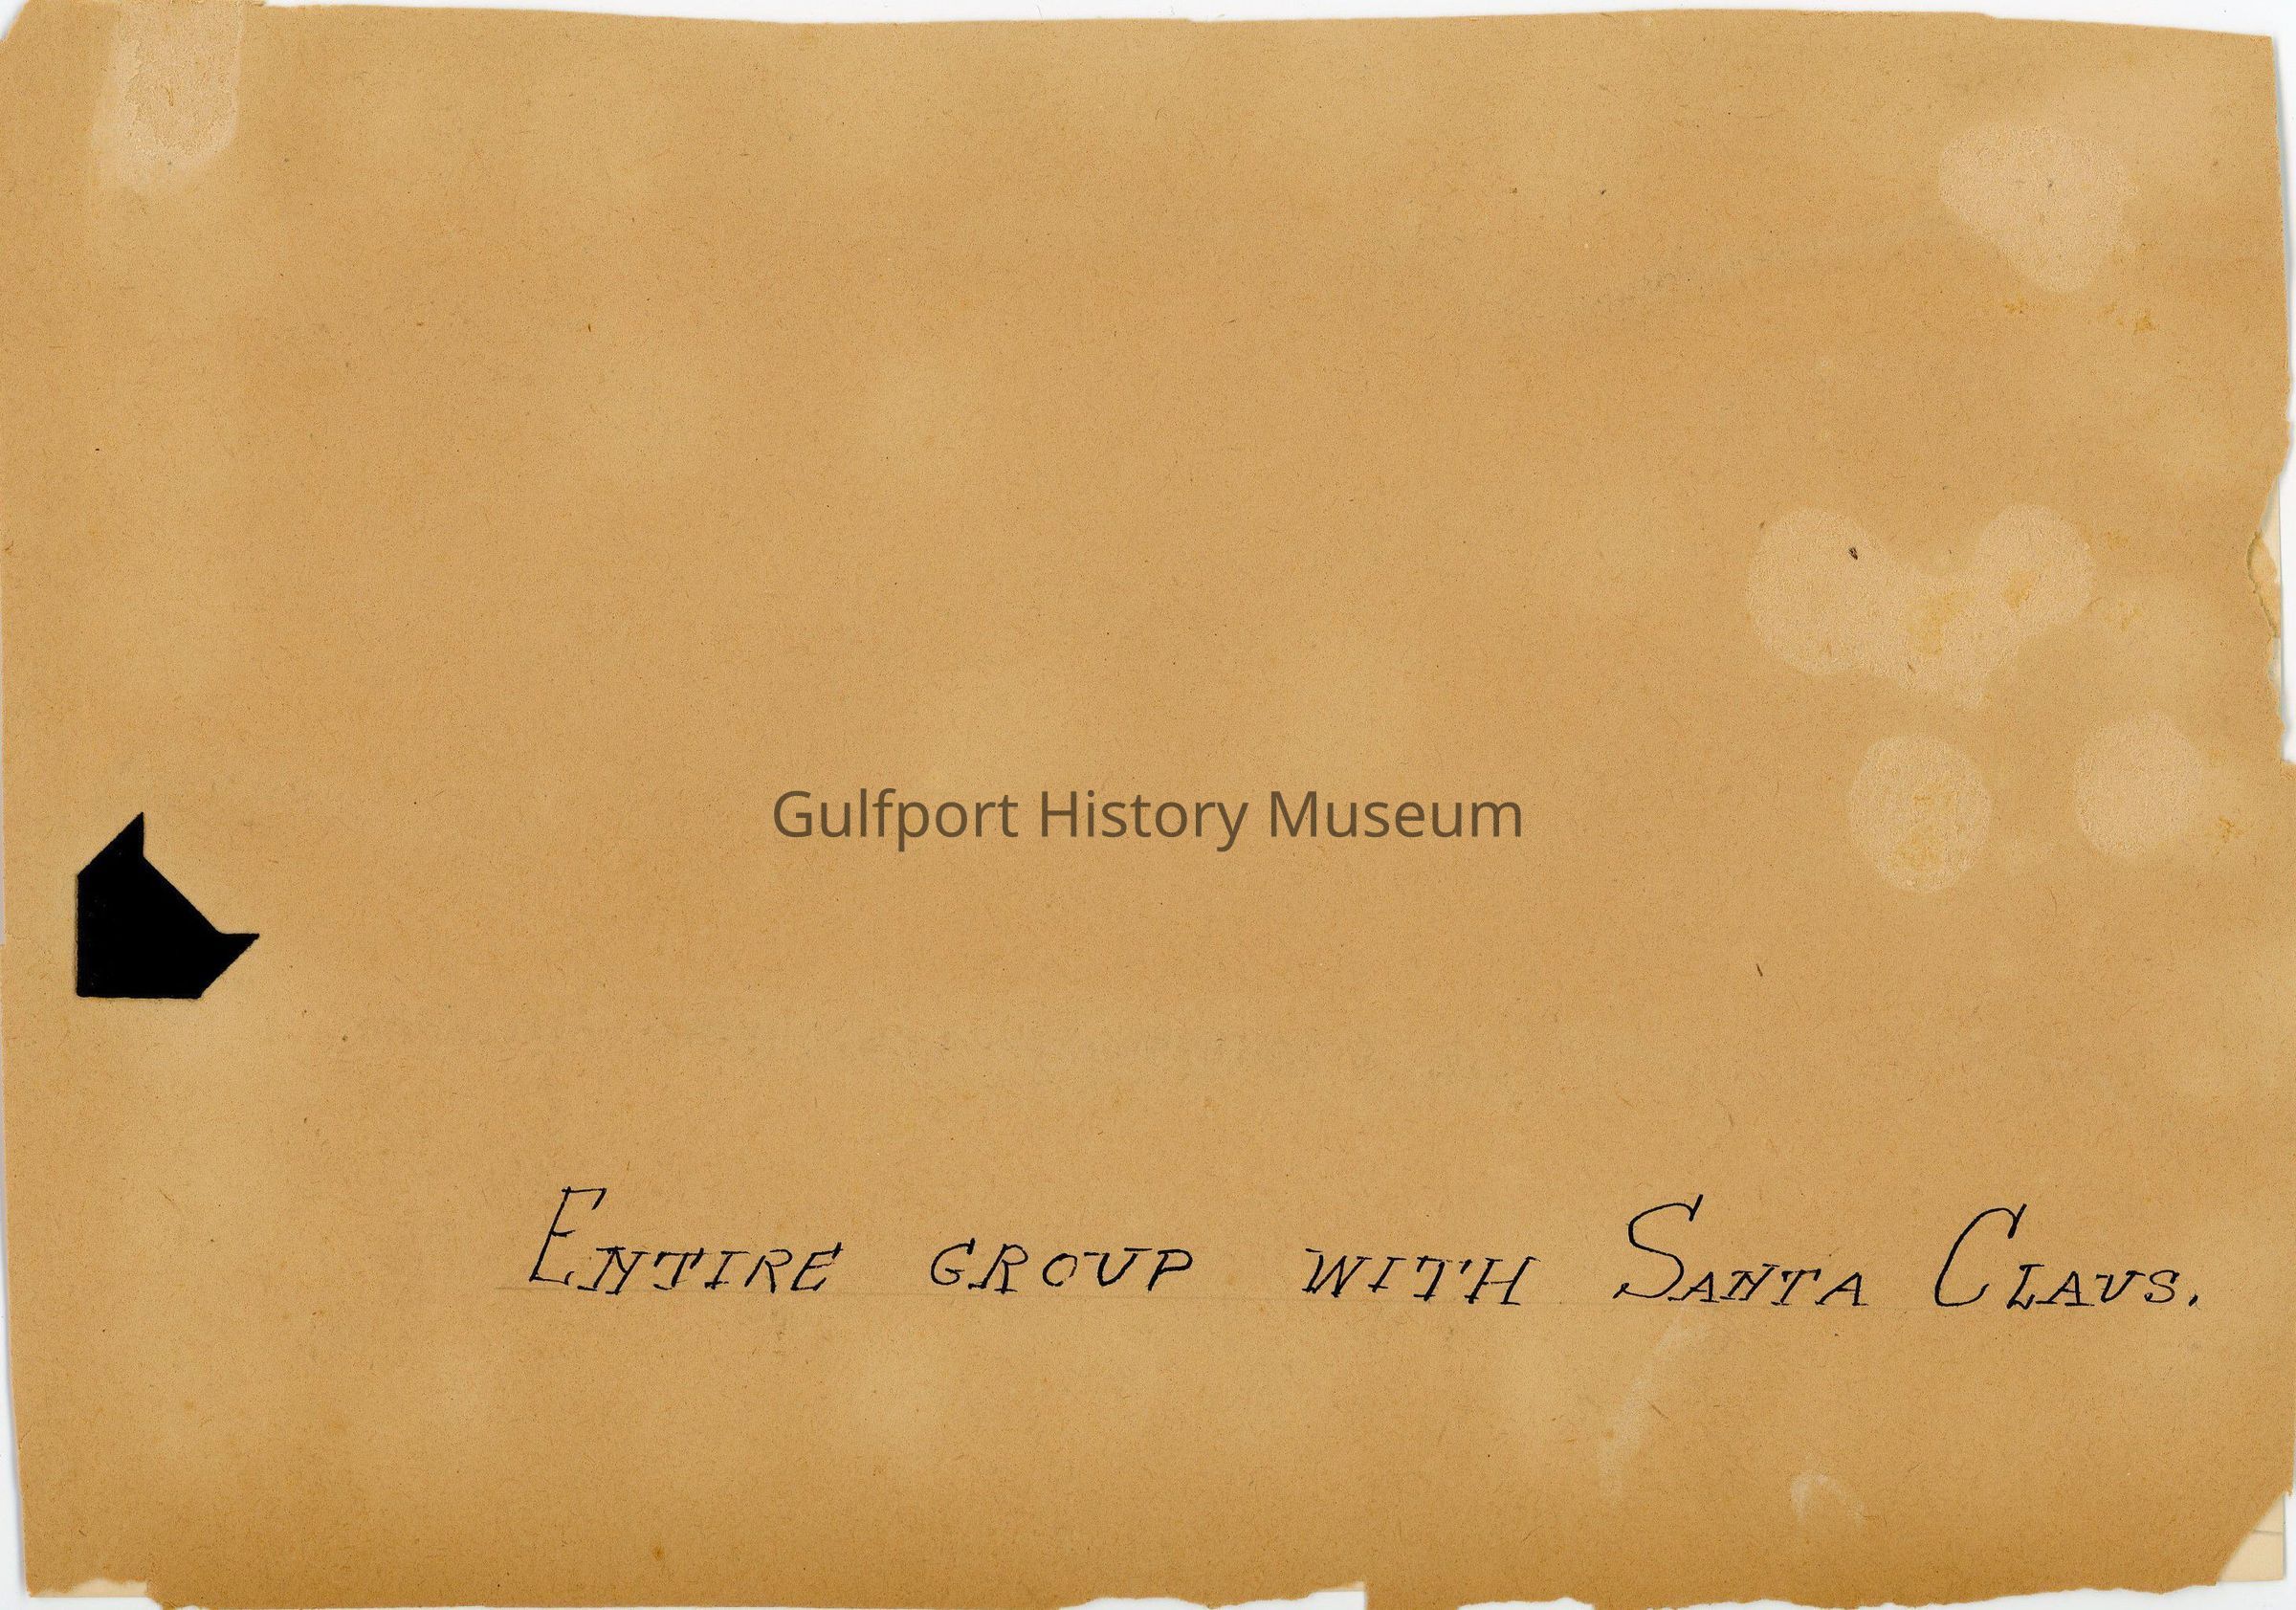 Gulfport History Museum
ENTIRE GROUP WITH SANTA CLAUS.